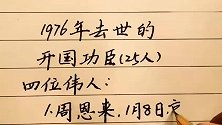 1976年去世的
开国功臣(25人)
四位伟人:
1.周恩来,1月8日